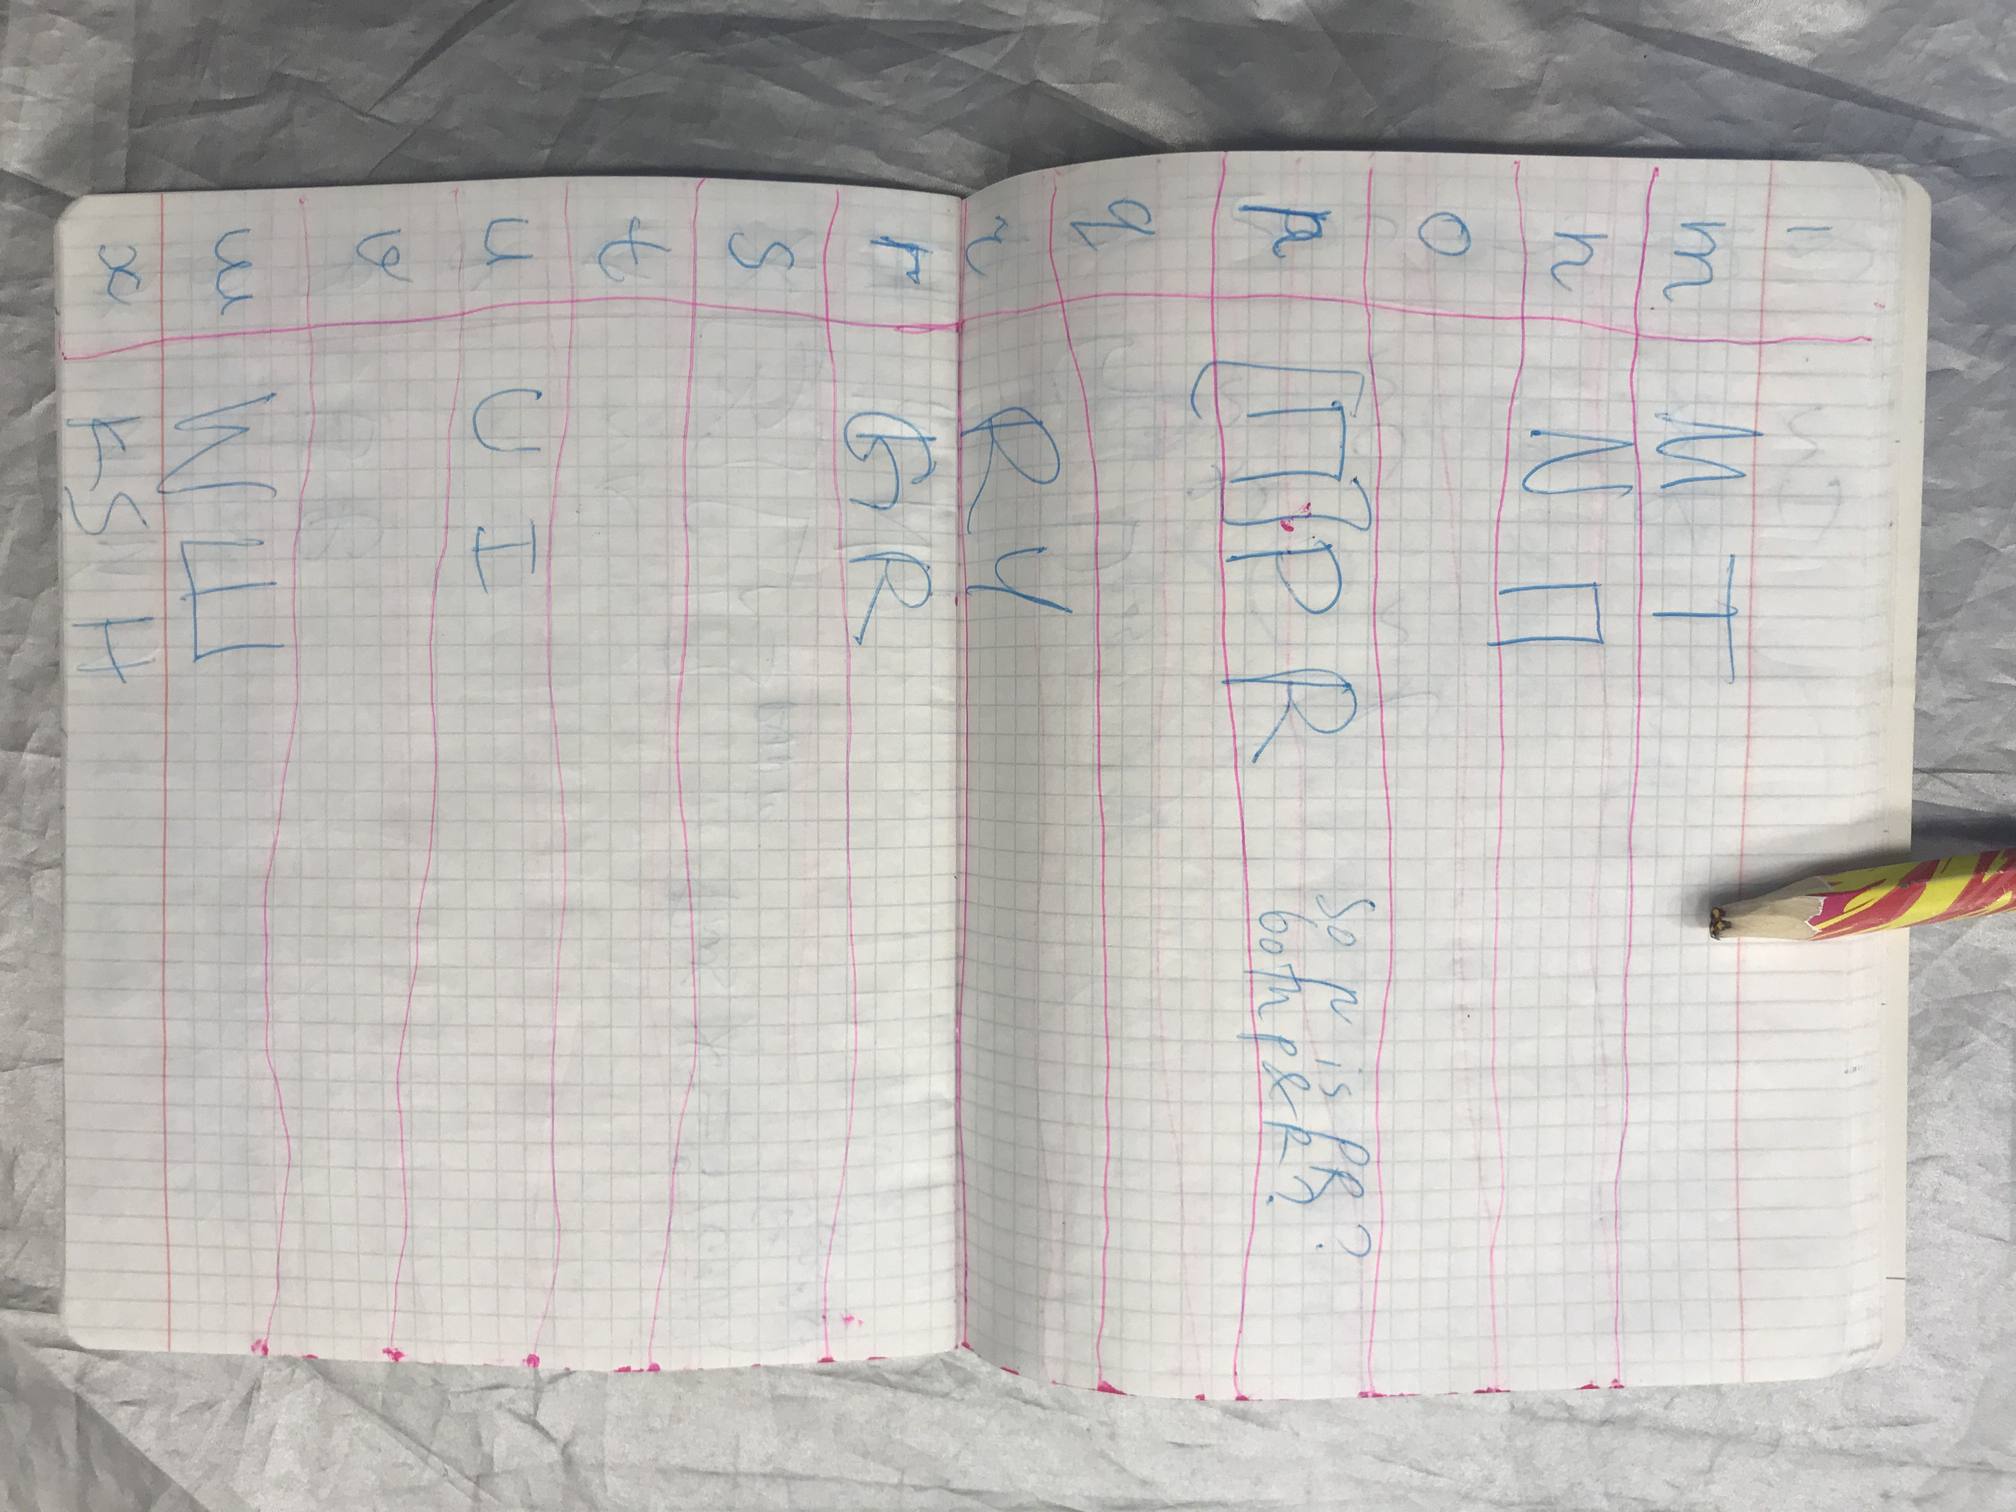 m M T
n N П
o
p [П,] P R So p is PR?
both P&R?
q
r R Ч
г G R
s
t
u U I
v
w W Ш
x KS H